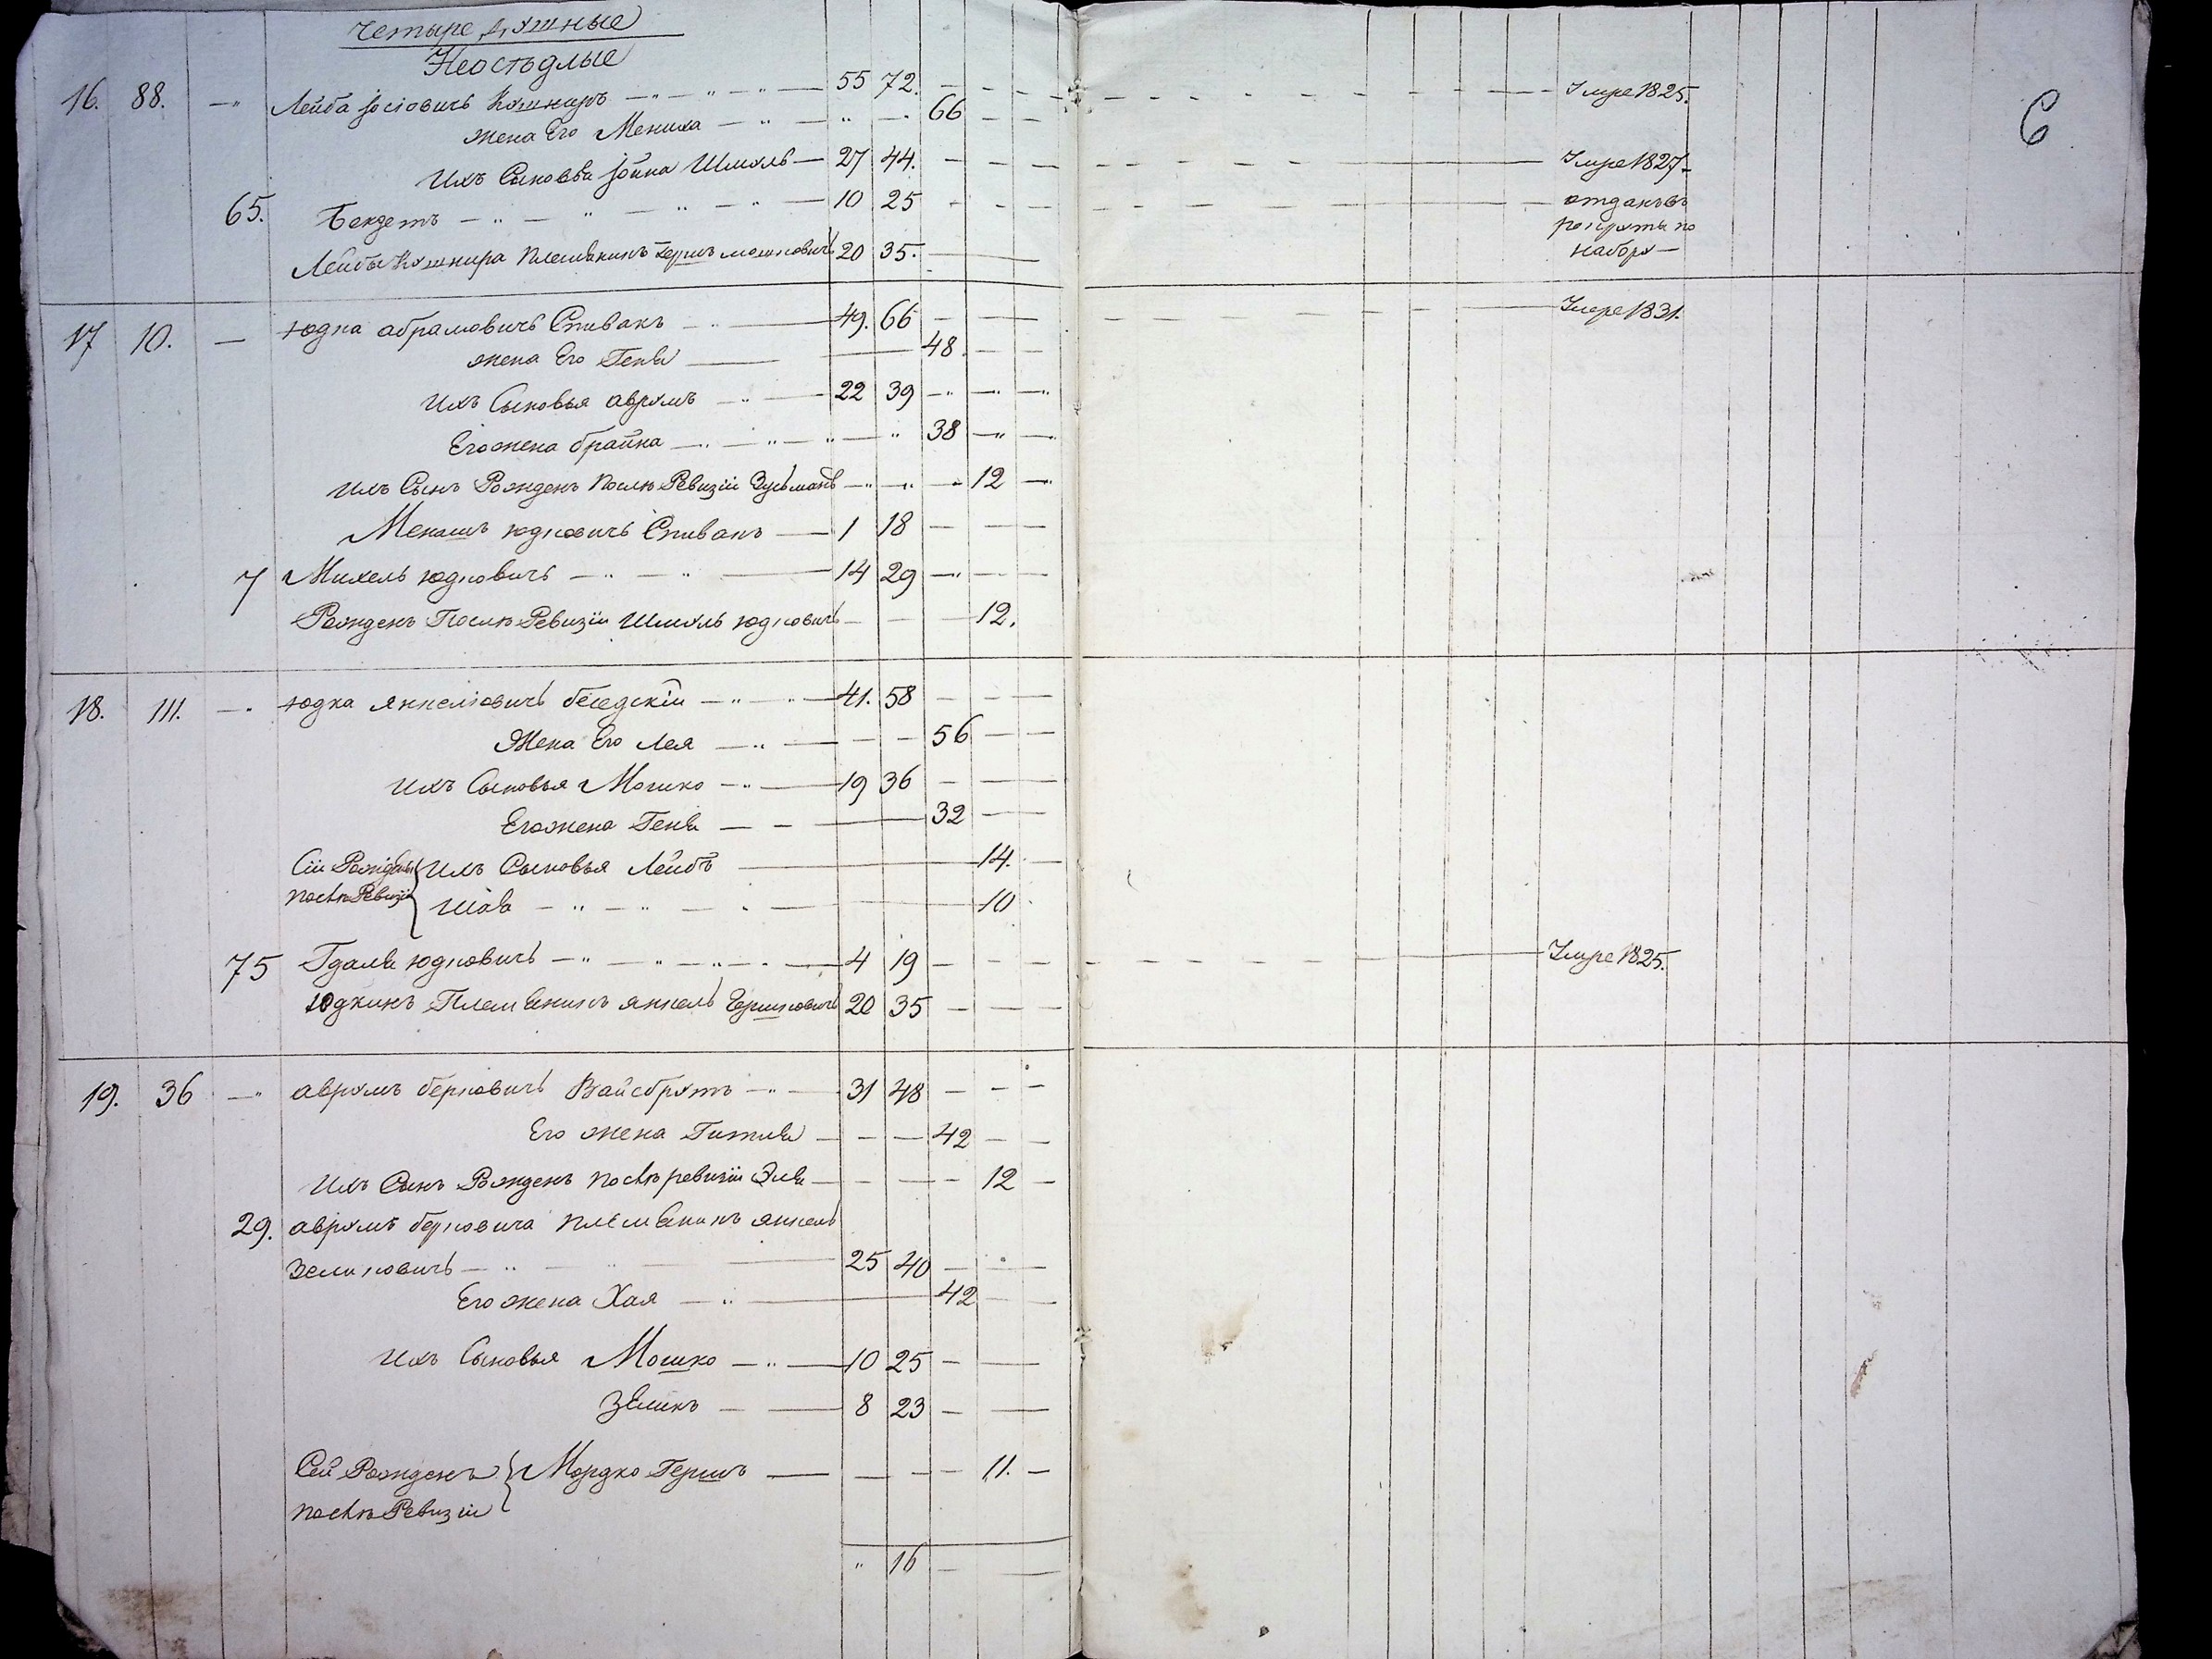 Четыре душные
Неостьдлые
16. 88. Лейба Іосіовичъ Кушниръ 55 72. Умре 1825.
жена Его Мениха 66
Ихъ Сыновья Іойна Шмуль 27 44. Умре 1827
65. Бенцетъ 10 25 отданъ въ
рекруты по
набору
Лейбы Кушнира Племянникъ Гершъ мошковичъ 20 35.
6
17 10. Юдка абрамовичъ Спивакъ 49. 66 Умре 1831.
жена Его Геня 48
Ихъ Сыновья аврумъ 22 39
Его жена брайна 38
Ихъ Сынъ Рожденъ Послѣ Ревизіи Зусьманъ 12
Менашъ юдковичъ Спивакъ 1 18
7 Михель юдковичъ 14 29
Рожденъ Послѣ Ревизіи Шмуль юдковичъ 12.
18. 111. Юдка янкеліовичъ беседскій 41. 58
Жена Его Лея 56
Ихъ Сыновья Мошко 19 36
Его жена Геня 32
Сіи Рождены Ихъ Сыновья Лейбъ 14.
послѣ Ревизіи Шая 10
75 Гдаля юдковичъ 4 19 Умре 1825.
Юдкинъ Племяникъ янкель Гершковичъ 20 35
19. 36 аврумъ берковичъ Вайсбрутъ 31 48
Его жена Гитля 42
Ихъ Сынъ Рожденъ послѣ ревизіи Эля 12
29. аврумъ берковича племяникъ янкель
Зеликовичъ 25 40
Его жена Хая 42
Ихъ Сыновья Мошко 10 25
Зеликъ 8 23
Сей Рожденъ Мордко Гершъ 11.
послѣ Ревизіи
16